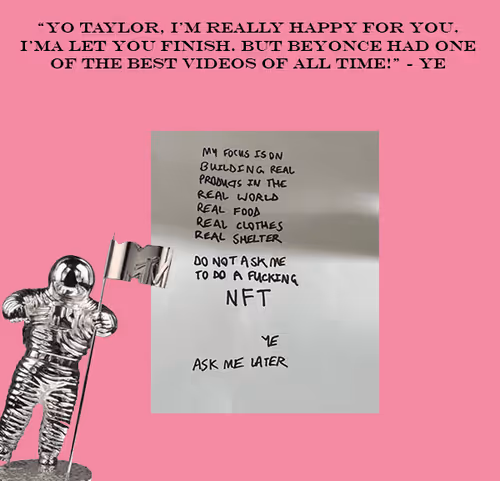 “YO TAYLOR, I’M REALLY HAPPY FOR YOU.
I’MA LET YOU FINISH. BUT BEYONCE HAD ONE
OF THE BEST VIDEOS OF ALL TIME!” - YE
MY FOCUS IS ON
BUILDING REAL
PRODUCTS IN THE
REAL WORLD
REAL FOOD
REAL CLOTHES
REAL SHELTER
DO NOT ASK ME
TO DO A FUCKING
NFT
YE
ASK ME LATER
MTV